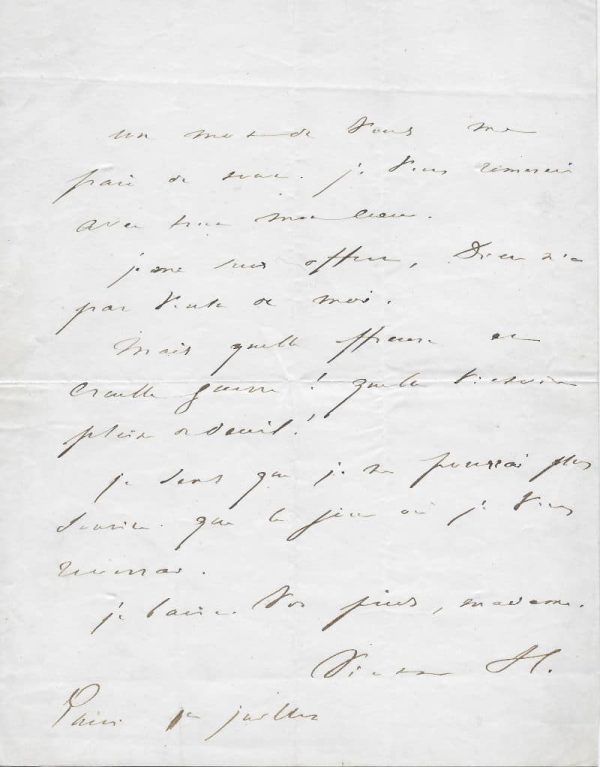 un mot de vous me
fait du bien. je vous remercie
avec tout mon cœur.
je me suis offert, Dieu n'a
pas voulu de moi.
Mais quelle affreuse et
cruelle guerre ! quelle victoire
pleine de deuil !
je sens que je ne pourrai plus
sourire que le jour où je vous
reverrai.
je baise vos pieds, madame.
Victor H.
Paris 1er juillet